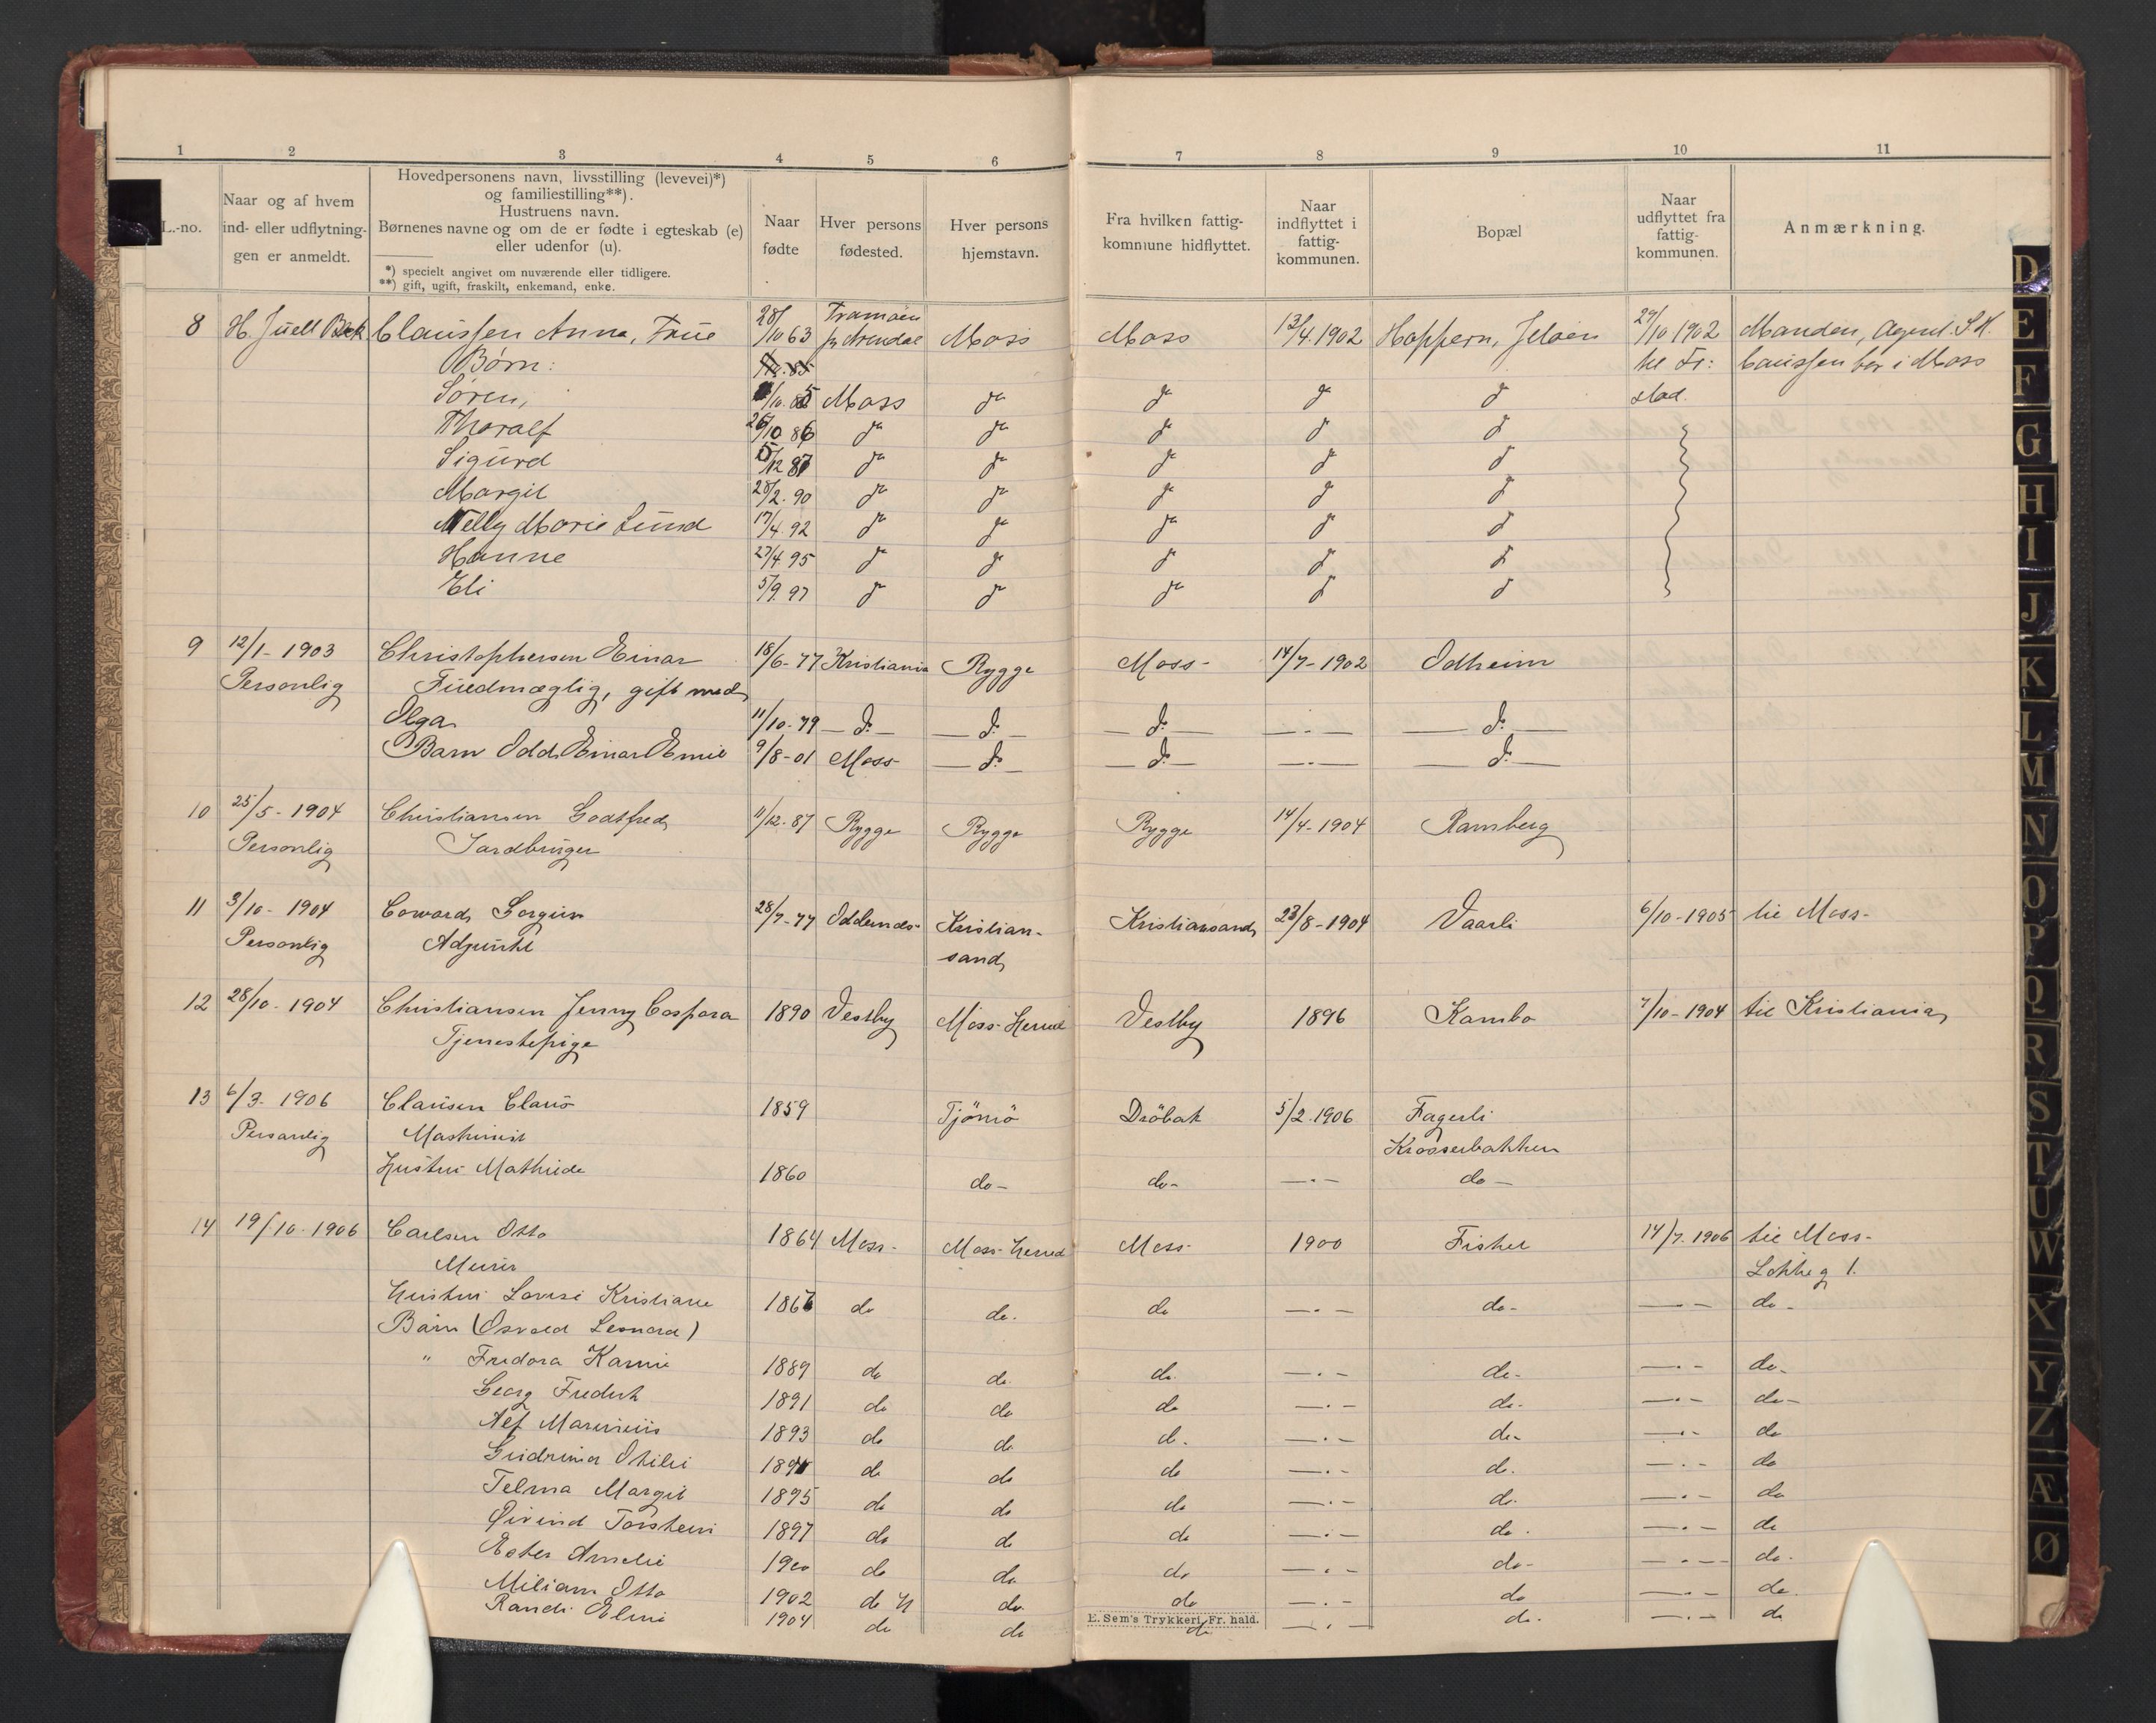 1 2 3 4 5 6 7 8 9 10 11
L.-no.
Naar og af hvem
ind- eller udflytnin-
gen er anmeldt.
Hovedpersonens navn, livsstilling (levevei)*)
og familiestilling**).
Hustruens navn.
Børnenes navne og om de er fødte i egteskab (e)
eller udenfor (u).
*) specielt angivet om nuværende eller tidligere.
**) gift, ugift, fraskilt, enkemand, enke.
Naar
fødte
Hver persons
fødested.
Hver persons
hjemstavn.
Fra hvilken fattig-
kommune hidflyttet.
Naar
indflyttet i
fattig-
kommunen.
Bopæl
Naar
udflyttet fra
fattig-
kommunen.
Anmærkning.
8 H. Juell Bæk Claussen Anna, Frue 28/10 63 Tromøen pr Arendal Moss Moss 13/4.1902 Hoppern, Jeløen 29/10 1902 Manden, Agent S. H.
Børn: til Fr: Caussen bor i Moss
Søren, /10.85 Moss do do do do stad.
Thoralf 26/10 86 do do do do do
Sigurd 5/12 87 do do do do do
Margit 28/2.90 do do do do do
Nelly Marie Lund 17/4 92 do do do do do
Hanne 27/4 95 do do do do do
Eli 5/9 97 do do do do do
9 12/1-1903 Christophersen Einar 18/6-77 Kristiania Rygge Moss- 14/7-1902 Odheim
Personlig Fuldmægtig, gift med
Olga 11/10-79 - do - - do - - do - - . - - do -
Barn Odd Einar Emil 9/8-01 Moss - do - - do - - . - - do -
10 25/5-1904 Christiansen Godtfred 11/12-87 Rygge Rygge Rygge 14/4-1904 Ramberg
Personlig Jardbruger
11 3/10-1904 Coward Gorgius 28/7-77 Oddernes- Kristian- Kristiansand 23/8-1904 Vaarli 6/10-1905 til Moss-
Personlig Adjunkt sand
12 28/10-1904 Christiansen Jenny Caspara 1890 Vestby Moss Herred Vestby 1896 Kambo 7/10-1904 til Kristiania
Tjenestepige
13 6/3-1906 Clausen Claus 1859 Tjömö Dröbak 5/2.1906 Fagerli
Personlig Maskinist Krosserbakken
Hustru Mathilde 1860 do- do- - . - do -
14 19/10-1906 Carlsen Otto 1864 Moss- Moss-Herred Moss- 1900 Fisker 14/7.1906 til Moss-
Murer
Hustru Lovise Kristiane 1867 do do. do - . - do- - . - do -
Barn (Osvald Leonard)
" Fredora Kamie 1889 do do. do. - . - do- - . - do-
Georg Fredrik 1891 do do do - . - do- - . - do-
Alf Marinius 1893 do do d. - . - do- - . - do
Gudruna Otilie 189 do do do - . - do. - . - do
Telma Margit 1895 do do do - . - do. - . - do
Øivind Torstein 1897 do do do - . - do. - . - do
Ester Amelie 1900 do do do - . - do- - . - do.
Miliam Otto 1902 do H do. do - . - do - . - do.
Randi Elvi 1904 do do do - . - do. - . - do
E. Sem's Trykkeri, Fr. hald.
D
E
F
G
H
I
J
K
L
M
N
O
P
Q
R
S
T
U
W
X
Y
Z
Æ
Ø